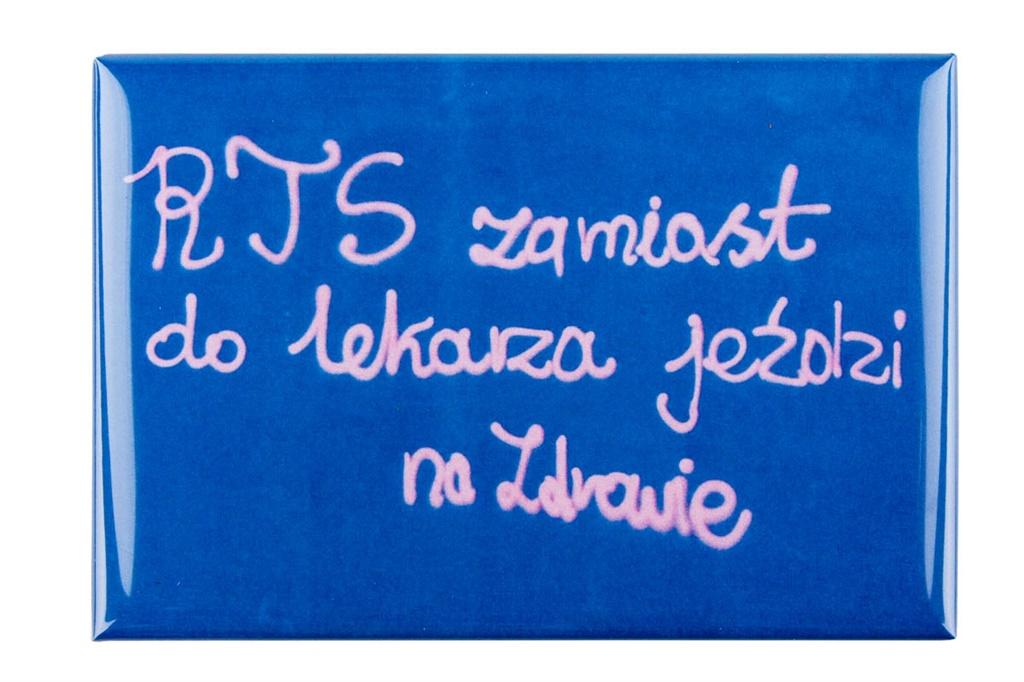 RTS zamiast
do lekarza jeździ
na Zdrowie